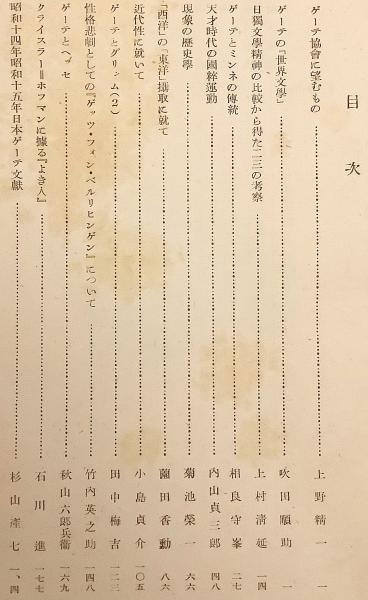 目次
ゲーテ協會に望むもの……上野精一 一
ゲーテの『世界文學』……吹田順助 一
日獨文學精神の比較から得た二三の考察……上村淸延 一四
ゲーテとミンネの傳統……相良守峯 二七
天才時代の國粹運動……內山貞三郞 四八
現象の歷史學……菊池榮一 六六
「西洋」の「東洋」攝取に就て……薗田香勳 八六
近代性に就いて……小島貞介 一〇五
ゲーテとグリム（2）……田中梅吉 一二三
性格悲劇としての『ゲッツ・フォン・ベルリヒンゲン』について……竹內英之助 一四八
ゲーテとヘッセ……秋山六郞兵衞 一六九
クライスラー＝ホフマンに據る『よき人』……石川進 一七七
昭和十四年昭和十五年日本ゲーテ文獻……杉山產七 一、四